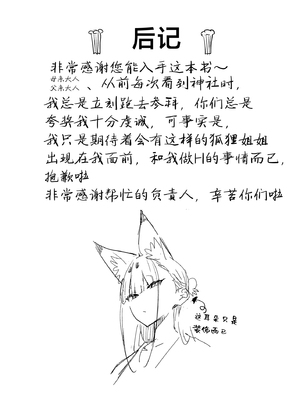 后记
非常感谢您能入手这本书～
母亲大人
父亲大人
、从前每次看到神社时，
我总是立刻跑去参拜，你们总是
夸奖我十分虔诚，可事实是，
我只是期待着会有这样的狐狸姐姐
出现在我面前，和我做H的事情而已，
抱歉啦
非常感谢帮忙的负责人，辛苦你们啦
这耳朵只是
装饰而已